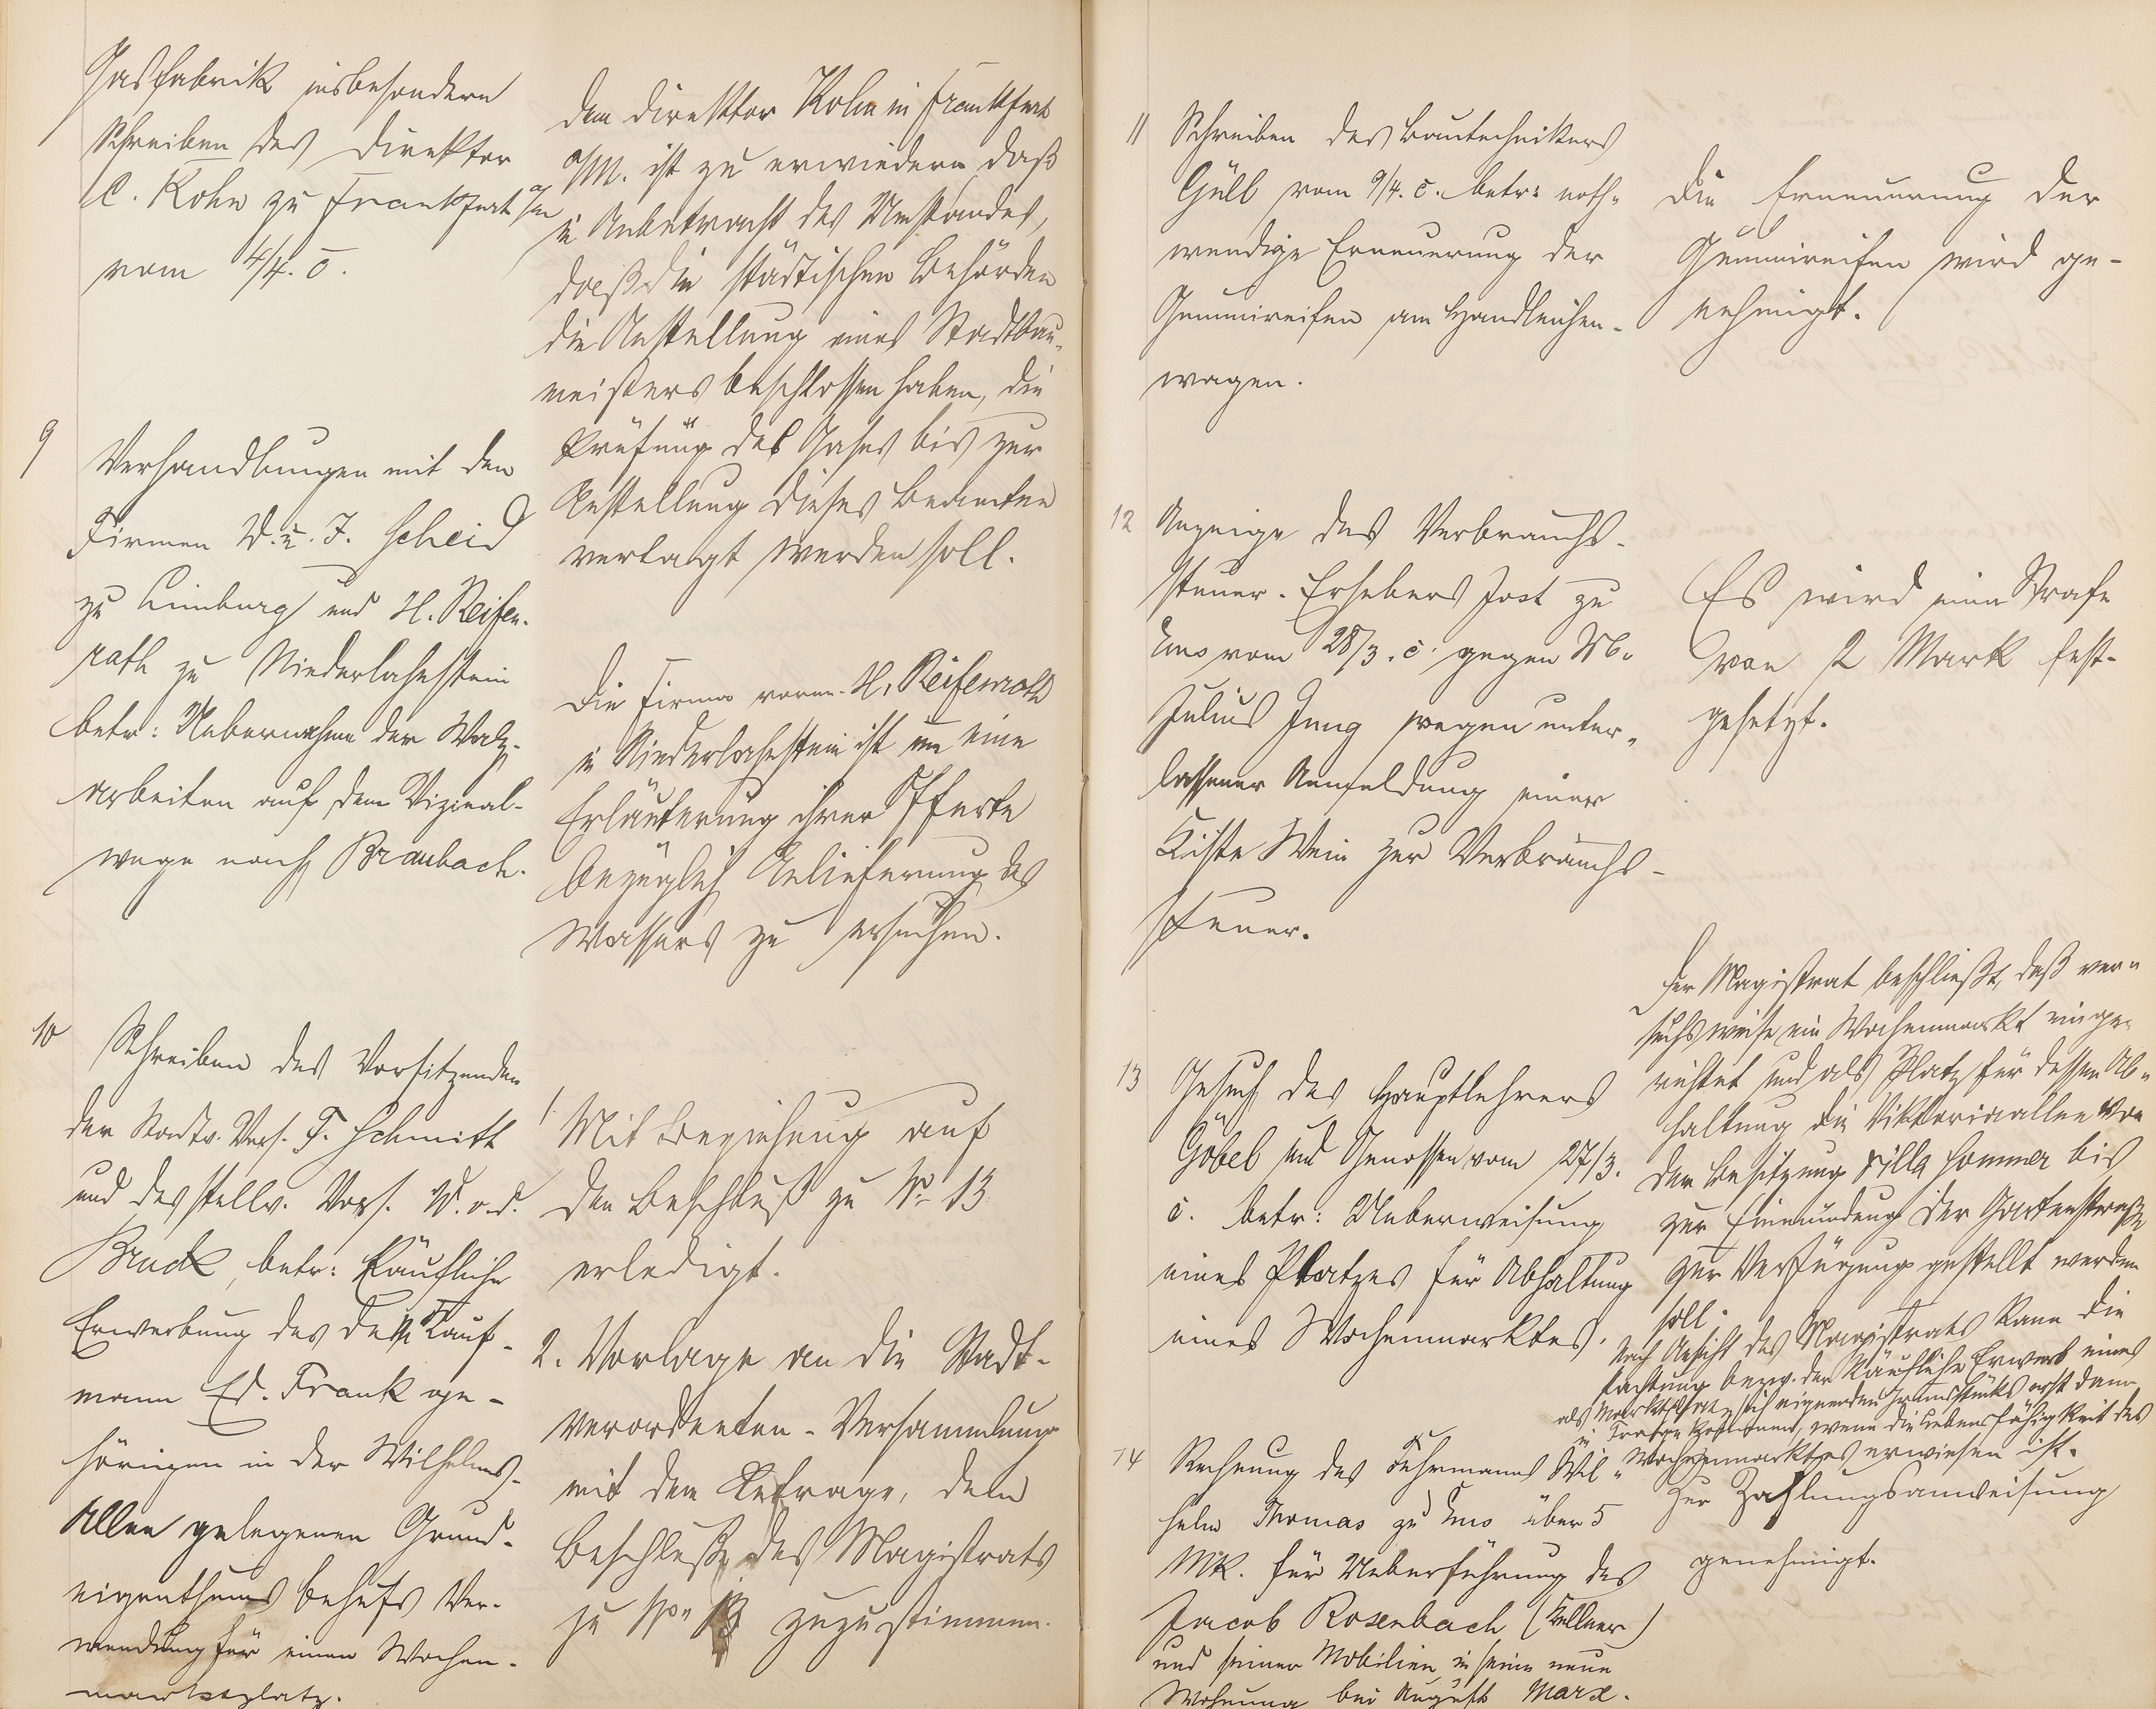 Gasfabrik insbesondern
Schreiben des Direktor
C. Kohn zu Frankfurt a/m
vom 4/4. c.
dem Direktor Kohn in Frankfurt
a/M. ist zu erwiedern daß
in Anbetracht des Umstandes,
daß die städtischen Behörden
die Anstellung eines Stadtbau-
meisters beschlossen haben, die
Prüfung des Gases bis zur
Anstellung dieses Beamten
vertagt werden soll.
9
Verhandlungen mit den
Firmen W. u. J. Scheid
zu Limburg und H. Reifen-
rath zu Niederlahnstein
betr: Uebernahme der Walz-
arbeiten auf dem Vizinal-
wege nach Braubach.
Die Firma vorm. H. Reifenrath
in Niederlahnstein ist um eine
Erläuterung ihrer Offerte
bezüglich Anlieferung des
Wassers zu ersuchen.
10
Schreiben des Vorsitzenden
der Stadtv. Vers. F. Schmitt
und des stellv. Vors. W. v. d.
Bruck, betr: käufliche
Erwerbung des dem Kauf-
mann Ed. Frank ge-
hörigen in der Wilhelms-
Allee gelegenen Grund-
eigenthums behufs Ver-
wendung für einen Wochen-
marktplatz.
1. Mit Beziehung auf
den Beschluß zu No 13
erledigt.
2. Vorlage an die Stadt-
verordneten-Versammlung
mit dem Antrage, dem
Beschlusse des Magistrats
zu No 13 zuzustimmen.
11 Schreiben des Bautechnikers
Güll vom 9/4. c. betr: noth-
wendige Erneuerung der
Gummireifen am Handleichen-
wagen.
Die Erneuerung der
Gummireifen wird ge-
nehmigt.
12 Anzeige des Verbrauchs-
steuer-Erhebers Jost zu
Ems vom 28/3. c. gegen
Julius Jung wegen unter-
lassener Anmeldung einer
Kiste Wein zur Verbrauchs-
steuer.
Es wird eine Strafe
von 2 Mark fest-
gesetzt.
13 Gesuch des Hauptlehrers
Göbel und Genossen vom 27/3.
c. betr: Ueberweisung
eines Platzes für Abhaltung
eines Wochenmarktes.
Der Magistrat beschließt, daß ver-
suchsweise ein Wochenmarkt einge-
richtet und als Platz für dessen Ab-
haltung die Viktoriaallee von
der Besitzung Villa Sommer bis
zur Einmündung der Gartenstraße
zur Verfügung gestellt werden
soll.
Nach Ansicht des Magistrats kann die
Pachtung bezw. der käufliche Erwerb eines
als Marktplatz sich eignenden Grundstücks erst dann
in Frage kommen, wenn die Lebensfähigkeit des
Wochenmarktes erwiesen ist.
14 Rechnung des Fuhrmanns Wil-
helm Thomas zu Ems über 5
Mk. für Ueberführung des
Jacob Rosenbach (Kellner)
und seiner Mobilien in seine neue
Wohnung bei August Marx.
Zur Zahlungsanweisung
genehmigt.